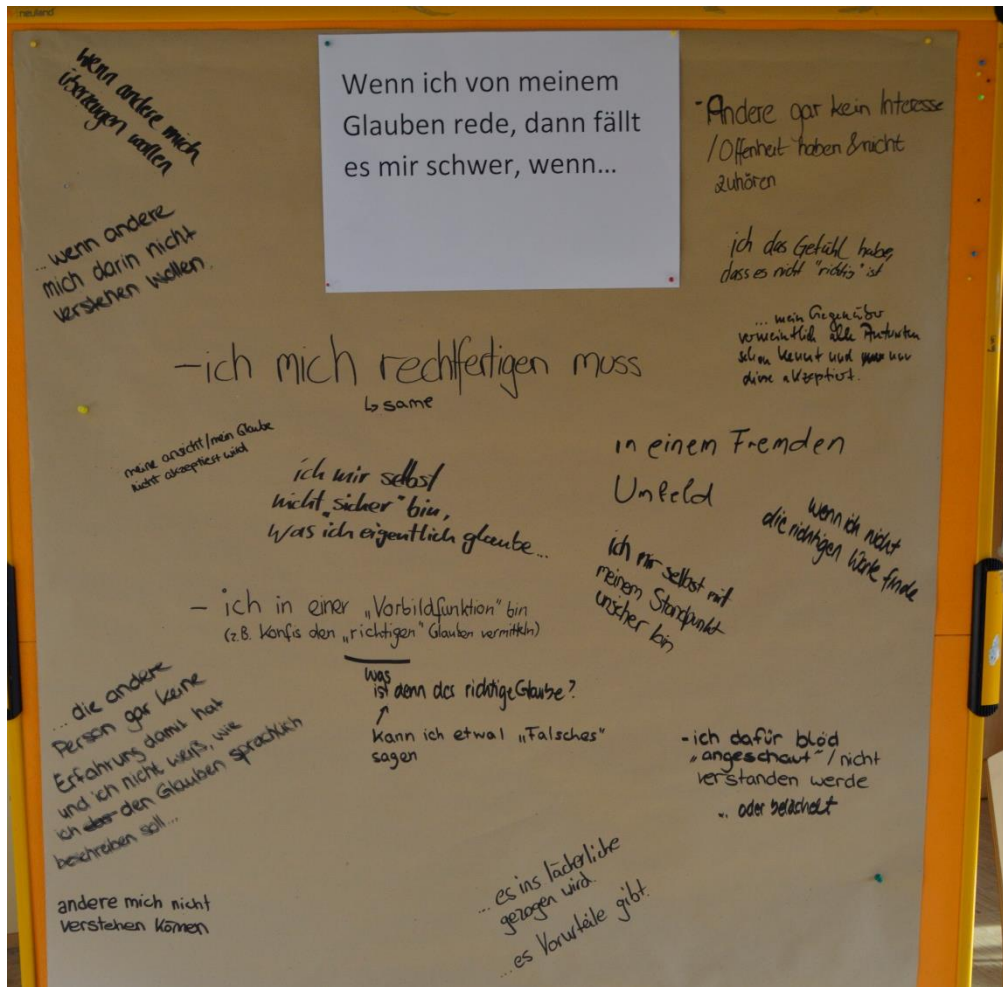 neuland
Wenn ich von meinem
Glauben rede, dann fällt
es mir schwer, wenn...
wenn andere mich
überzeugen wollen
- Andere gar kein Interesse
/ Offenheit haben & nicht
zuhören
...wenn andere
mich darin nicht
verstehen wollen.
ich das Gefühl habe,
dass es nicht "richtig" ist
... mein Gegenüber
vermeintlich alle Antworten
schon kennt und nur
diese akzeptiert.
- ich mich rechtfertigen muss
↳ same
meine ansicht/mein Glaube
nicht akzeptiert wird
ich mir selbst
nicht „sicher“ bin,
was ich eigentlich glaube...
in einem Fremden
Umfeld
wenn ich nicht
die richtigen Worte finde
ich mir selbst mit
meinem Standpunkt
unsicher bin
- ich in einer „Vorbildfunktion“ bin
(z.B. Konfis den „richtigen“ Glauben vermitteln)
Was
ist denn der richtige Glaube?
↑
Kann ich etwal „Falsches“
sagen
...die andere
Person gar keine
Erfahrung damit hat
und ich nicht weiß, wie
ich den Glauben sprachlich
beschreiben soll...
- ich dafür blöd
„angeschaut“ / nicht
verstanden werde
... oder belächelt
andere mich nicht
verstehen können
... es ins lächerliche
gezogen wird.
...es Vorurteile gibt.